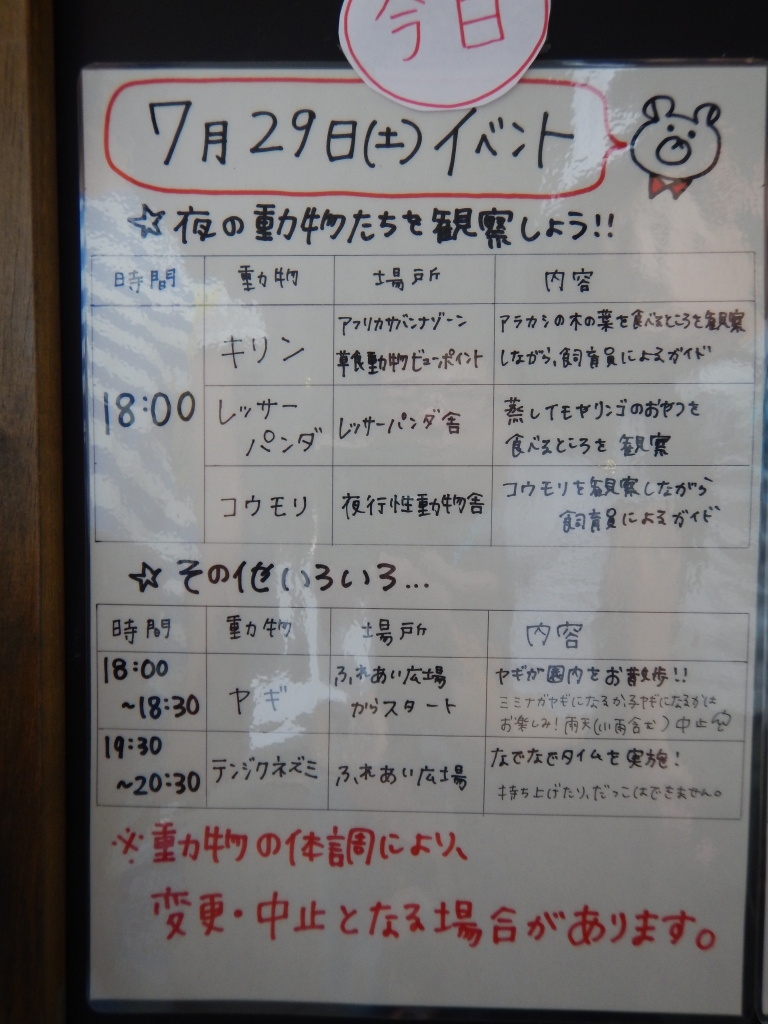 今日
7月29日(土)イベント
☆夜の動物たちを観察しよう!!
時間 動物 場所 内容
18:00
キリン
アフリカサバンナゾーン
草食動物ビューポイント
アラカシの木の葉を食べるところを観察
しながら、飼育員によるガイド
レッサー
パンダ
レッサーパンダ舎
蒸しイモやリンゴのおやつを
食べるところを観察
コウモリ
夜行性動物舎
コウモリを観察しながら
飼育員によるガイド
☆その他いろいろ...
時間 動物 場所 内容
18:00
~18:30
ヤギ
ふれあい広場
からスタート
ヤギが園内をお散歩!!
ミミナガヤギになるか子ヤギになるかは
お楽しみ!雨天(小雨含む)中止
19:30
~20:30
テンジクネズミ
ふれあい広場
なでなでタイムを実施!
持ち上げたり、だっこはできません。
※動物の体調により、
変更・中止となる場合があります。